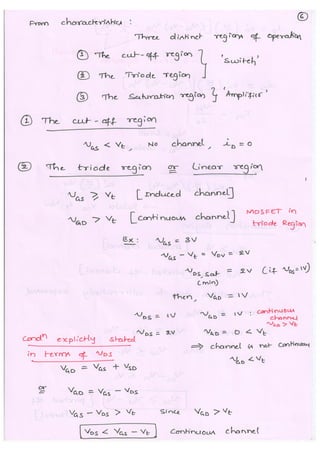 6
From characteristics :
Three distinct regions of operation
① The cut-off region
② The Triode region
'Switch'
③ The Saturation region } 'Amplifier'
① The cut-off region
VGS < Vt , No channel , iD = 0
② The triode region or Linear region
VGS ≥ Vt [Induced channel]
VGD > Vt [Continuous channel]
MOSFET in
triode Region
Ex : VGS = 3V
VGS - Vt = VOV = 2V
VDS,sat = 2V (if VDS=1V)
(min)
then, VGD = 1V
VDS = 1V VGD = 1V : Continuous
channel
VGD > Vt
VDS = 2V VGD = 0 < Vt
⇒ channel is not continuous
VGD < Vt
Condn explicitly stated
in terms of VDS
VGD = VGS + VSD
or VGD = VGS - VDS
VGS - VDS > Vt since VGD > Vt
VDS < VGS - Vt Continuous channel